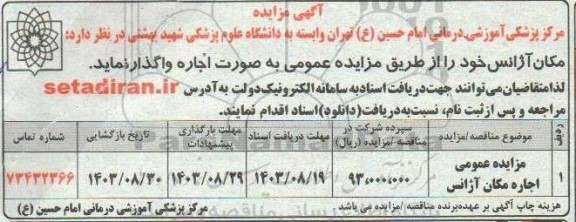 آگهی مزایده
مرکز پزشکی آموزشی درمانی امام حسین (ع) تهران وابسته به دانشگاه علوم پزشکی شهید بهشتی در نظر دارد:
مکان آژانس خود را از طریق مزایده عمومی به صورت اجاره واگذار نماید.
لذا متقاضیان می توانند جهت دریافت اسناد به سامانه الکترونیک دولت به آدرس setadiran.ir
مراجعه و پس از ثبت نام، نسبت به دریافت (دانلود) اسناد اقدام نمایند.
ردیف | موضوع مناقصه/مزایده | سپرده شرکت در مناقصه/مزایده (ریال) | مهلت دریافت اسناد | مهلت بارگذاری پیشنهادات | تاریخ بازگشایی | شماره تماس
۱ | مزایده عمومی اجاره مکان آژانس | ۹۳،۰۰۰،۰۰۰ | ۱۴۰۳/۰۸/۱۹ | ۱۴۰۳/۰۸/۲۹ | ۱۴۰۳/۰۸/۳۰ | ۷۳۴۳۲۳۶۶
هزینه چاپ آگهی بر عهده برنده مناقصه/مزایده می باشد
مرکز پزشکی آموزشی درمانی امام حسین (ع)